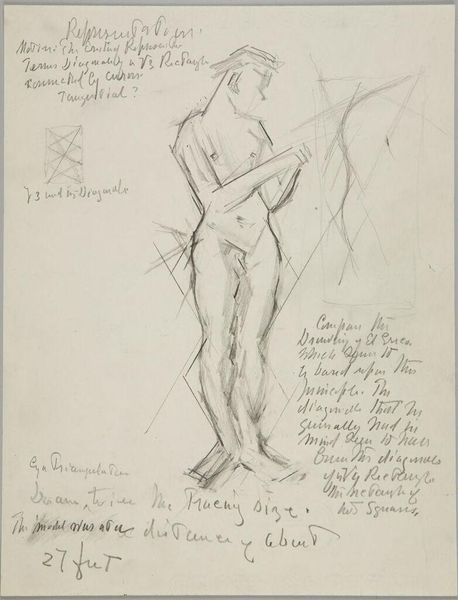 Representation.
Existing
Terms Diagonally a √3 Rectangle
Connected by curves
Tangential?
√3 and its Diagonals
Compare the
Drawing of El Greco
Which seem to
be based upon this
principle. The
diagonals that he
generally had in
mind seem to have
been the diagonals
Rectangle
the Rectangle of
two Squares.
Eye Triangulation
Drawn to see the Tracing Size.
The model was at a distance of about
27 feet